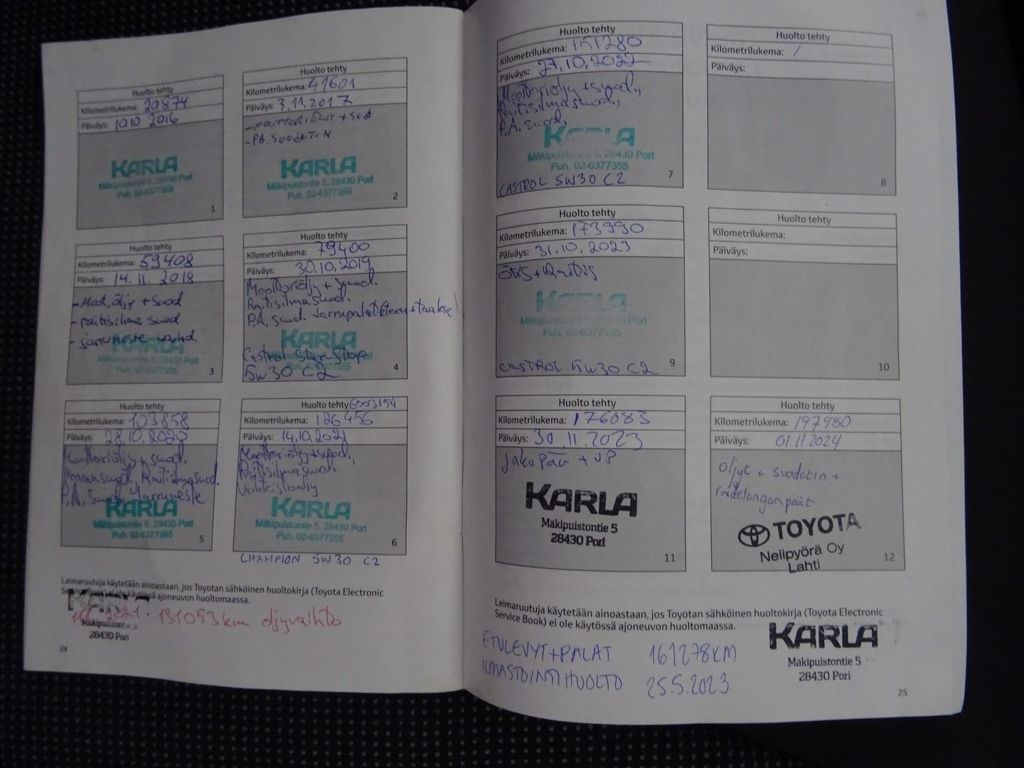 Huolto tehty
Kilometrilukema: 20874
Päiväys: 1010 2016
KARLA
Mäkipuistontie 5, 28430 Pori
Puh. 02-6377355
1
Huolto tehty
Kilometrilukema: 41601
Päiväys: 3.11.2017
- MOOTTORIÖLJY + SUOD
- P.A. SUODATIN
KARLA
Mäkipuistontie 5, 28430 Pori
Puh. 02-6377355
2
Huolto tehty
Kilometrilukema: 59408
Päiväys: 14.11.2018
- Moot.öljy + Suod
- raitisilma suod
- jarruneste vaihd.
KARLA
Mäkipuistontie 5, 28430 Pori
Puh. 02-6377355
3
Huolto tehty
Kilometrilukema: 79400
Päiväys: 30.10.2019
Moottoriöljy + Suod.
Raitisilmasuod.
P.A. suod. Jarrupalat (Eteen + taakse)
KARLA
Castrol Star-Stop
5W30 C2
4
Huolto tehty
Kilometrilukema: 103858
Päiväys: 28.10.2020
Moottoriöljy + suod.
Raitisilmasuod.
P.A. Suod. Jarruneste
KARLA
Mäkipuistontie 5, 28430 Pori
Puh. 02-6377355
5
Huolto tehty
Kilometrilukema: 126456
Päiväys: 14.10.2021
Moottoriöljy + suod.,
Raitisilmasuod.
KARLA
Mäkipuistontie 5, 28430 Pori
Puh. 02-6377355
6
CHAMPION 5W30 C2
Leimaruutuja käytetään ainoastaan, jos Toyotan sähköinen huoltokirja (Toyota Electronic
Service Book) ei ole käytössä ajoneuvon huoltomaassa.
2021. 131053 km öljyvaihto
28430 Pori
24
Huolto tehty
Kilometrilukema: 151280
Päiväys: 27.10.2022
Moottoriöljy + suod.,
Raitisilmasuod.,
P.A. suod,
KARLA
Mäkipuistontie 5, 28430 Pori
Puh. 02-6377355
7
CASTROL 5W30 C2
Huolto tehty
Kilometrilukema: /
Päiväys:
8
Huolto tehty
Kilometrilukema: 173990
Päiväys: 31.10.2023
KARLA
Mäkipuistontie 5, 28430 Pori
Puh. 02-6377355
CASTROL 5W30 C2
9
Huolto tehty
Kilometrilukema:
Päiväys:
10
Huolto tehty
Kilometrilukema: 176083
Päiväys: 30.11.2023
Jako Pää + VP
KARLA
Mäkipuistontie 5
28430 Pori
11
Huolto tehty
Kilometrilukema: 197980
Päiväys: 01.11.2024
Öljyt + suodatin +
raidetangonpäät
TOYOTA
Nelipyörä Oy
Lahti
12
Leimaruutuja käytetään ainoastaan, jos Toyotan sähköinen huoltokirja (Toyota Electronic
Service Book) ei ole käytössä ajoneuvon huoltomaassa.
ETULEVYT+PALAT 161278KM
ILMASTOINTIHUOLTO 25.5.2023
KARLA
Mäkipuistontie 5
28430 Pori
25